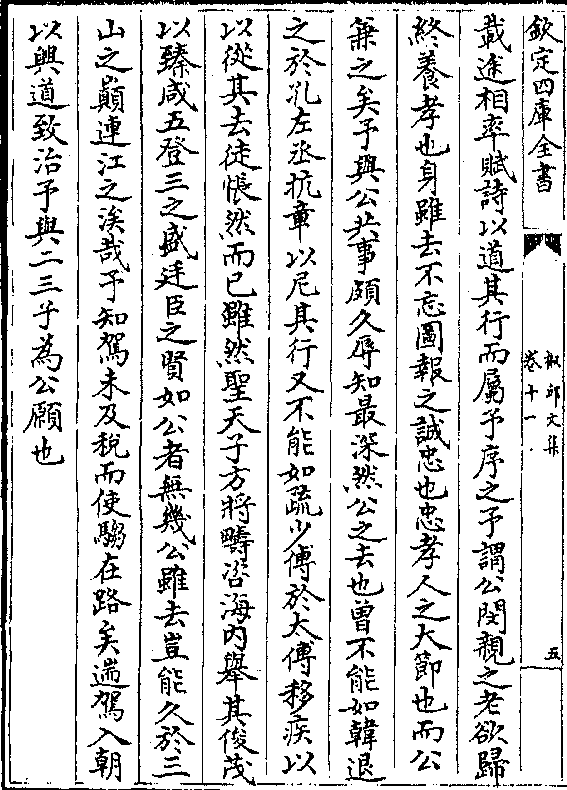 欽定四庫全書
載途相率賦詩以道其行而屬予序之予謂公閔親之老欲歸
終養孝也身雖去不忘圖報之誠忠也忠孝人之大節也而公
兼之矣予與公共事頗久辱知最深然公之去也曽不能如韓退
之於孔左丞抗章以尼其行又不能如疏少傅於太傅移疾以
以從其去徒悵然而已雖然聖天子方將疇咨海内舉其俊茂
以臻咸五登三之盛廷臣之賢如公者無幾公雖去豈能久於三
山之巔連江之涘哉予知駕未及稅而使騶在路矣遄駕入朝
以興道致治予與二三子為公願也
文集
卷十一
五